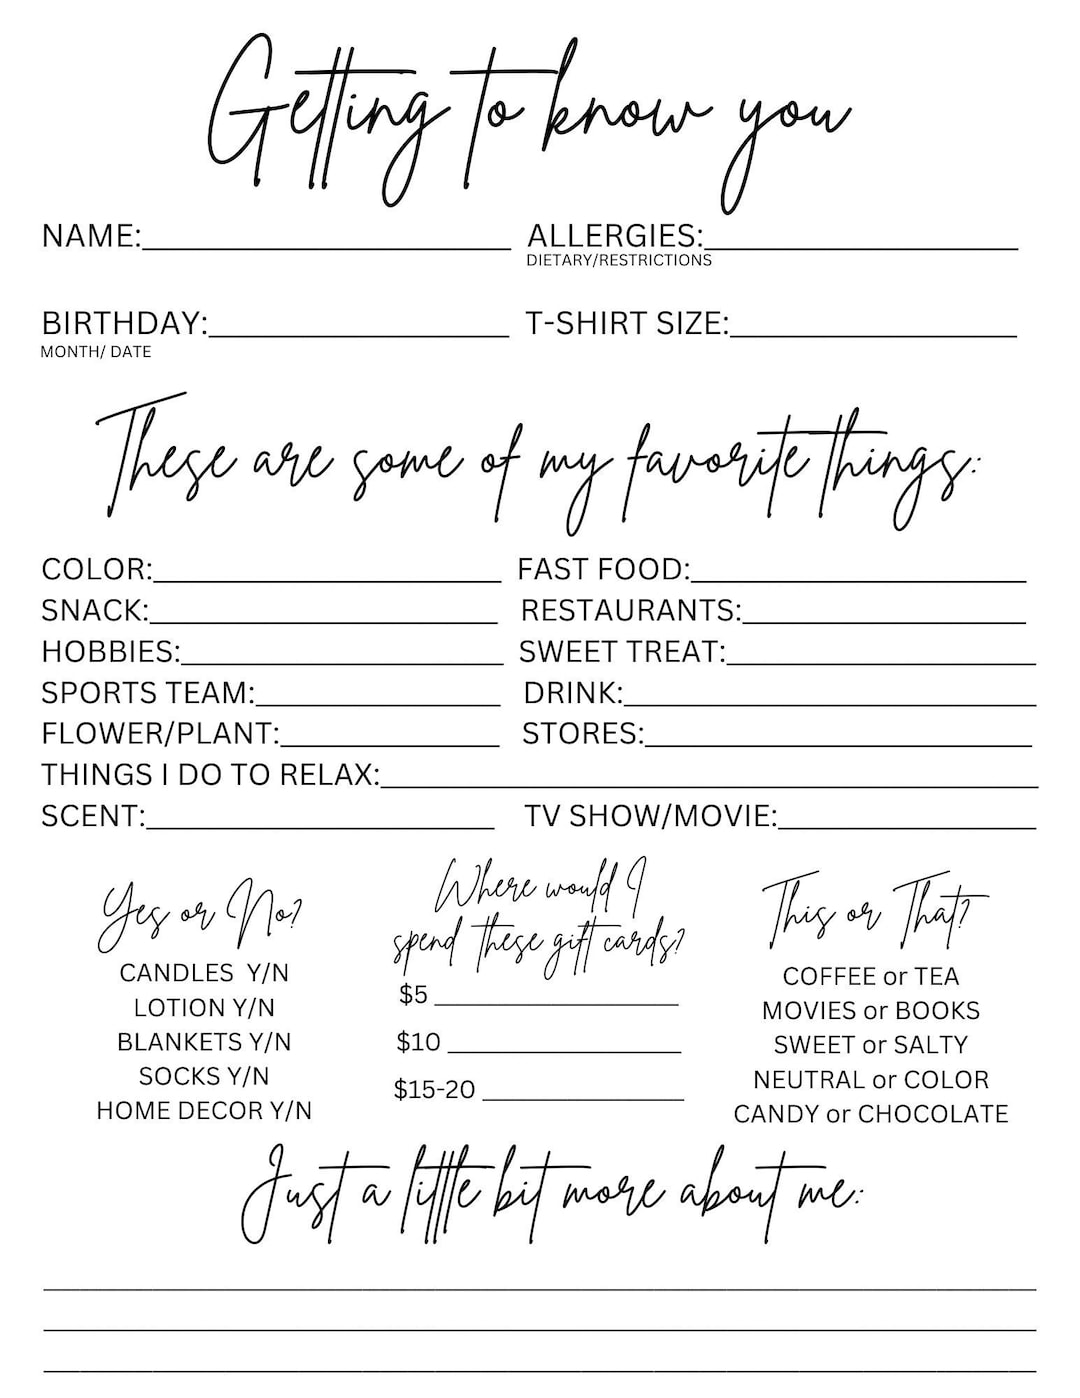 Getting to know you
NAME:____________________ ALLERGIES:____________________
DIETARY/RESTRICTIONS
BIRTHDAY:____________________ T-SHIRT SIZE:____________________
MONTH/ DATE
These are some of my favorite things:
COLOR:____________________ FAST FOOD:____________________
SNACK:____________________ RESTAURANTS:____________________
HOBBIES:____________________ SWEET TREAT:____________________
SPORTS TEAM:____________________ DRINK:____________________
FLOWER/PLANT:____________________ STORES:____________________
THINGS I DO TO RELAX:____________________
SCENT:____________________ TV SHOW/MOVIE:____________________
Yes or No?
CANDLES  Y/N
LOTION Y/N
BLANKETS Y/N
SOCKS Y/N
HOME DECOR Y/N
Where would I
spend these gift cards?
$5 ____________________
$10 ____________________
$15-20 ____________________
This or That?
COFFEE or TEA
MOVIES or BOOKS
SWEET or SALTY
NEUTRAL or COLOR
CANDY or CHOCOLATE
Just a little bit more about me: